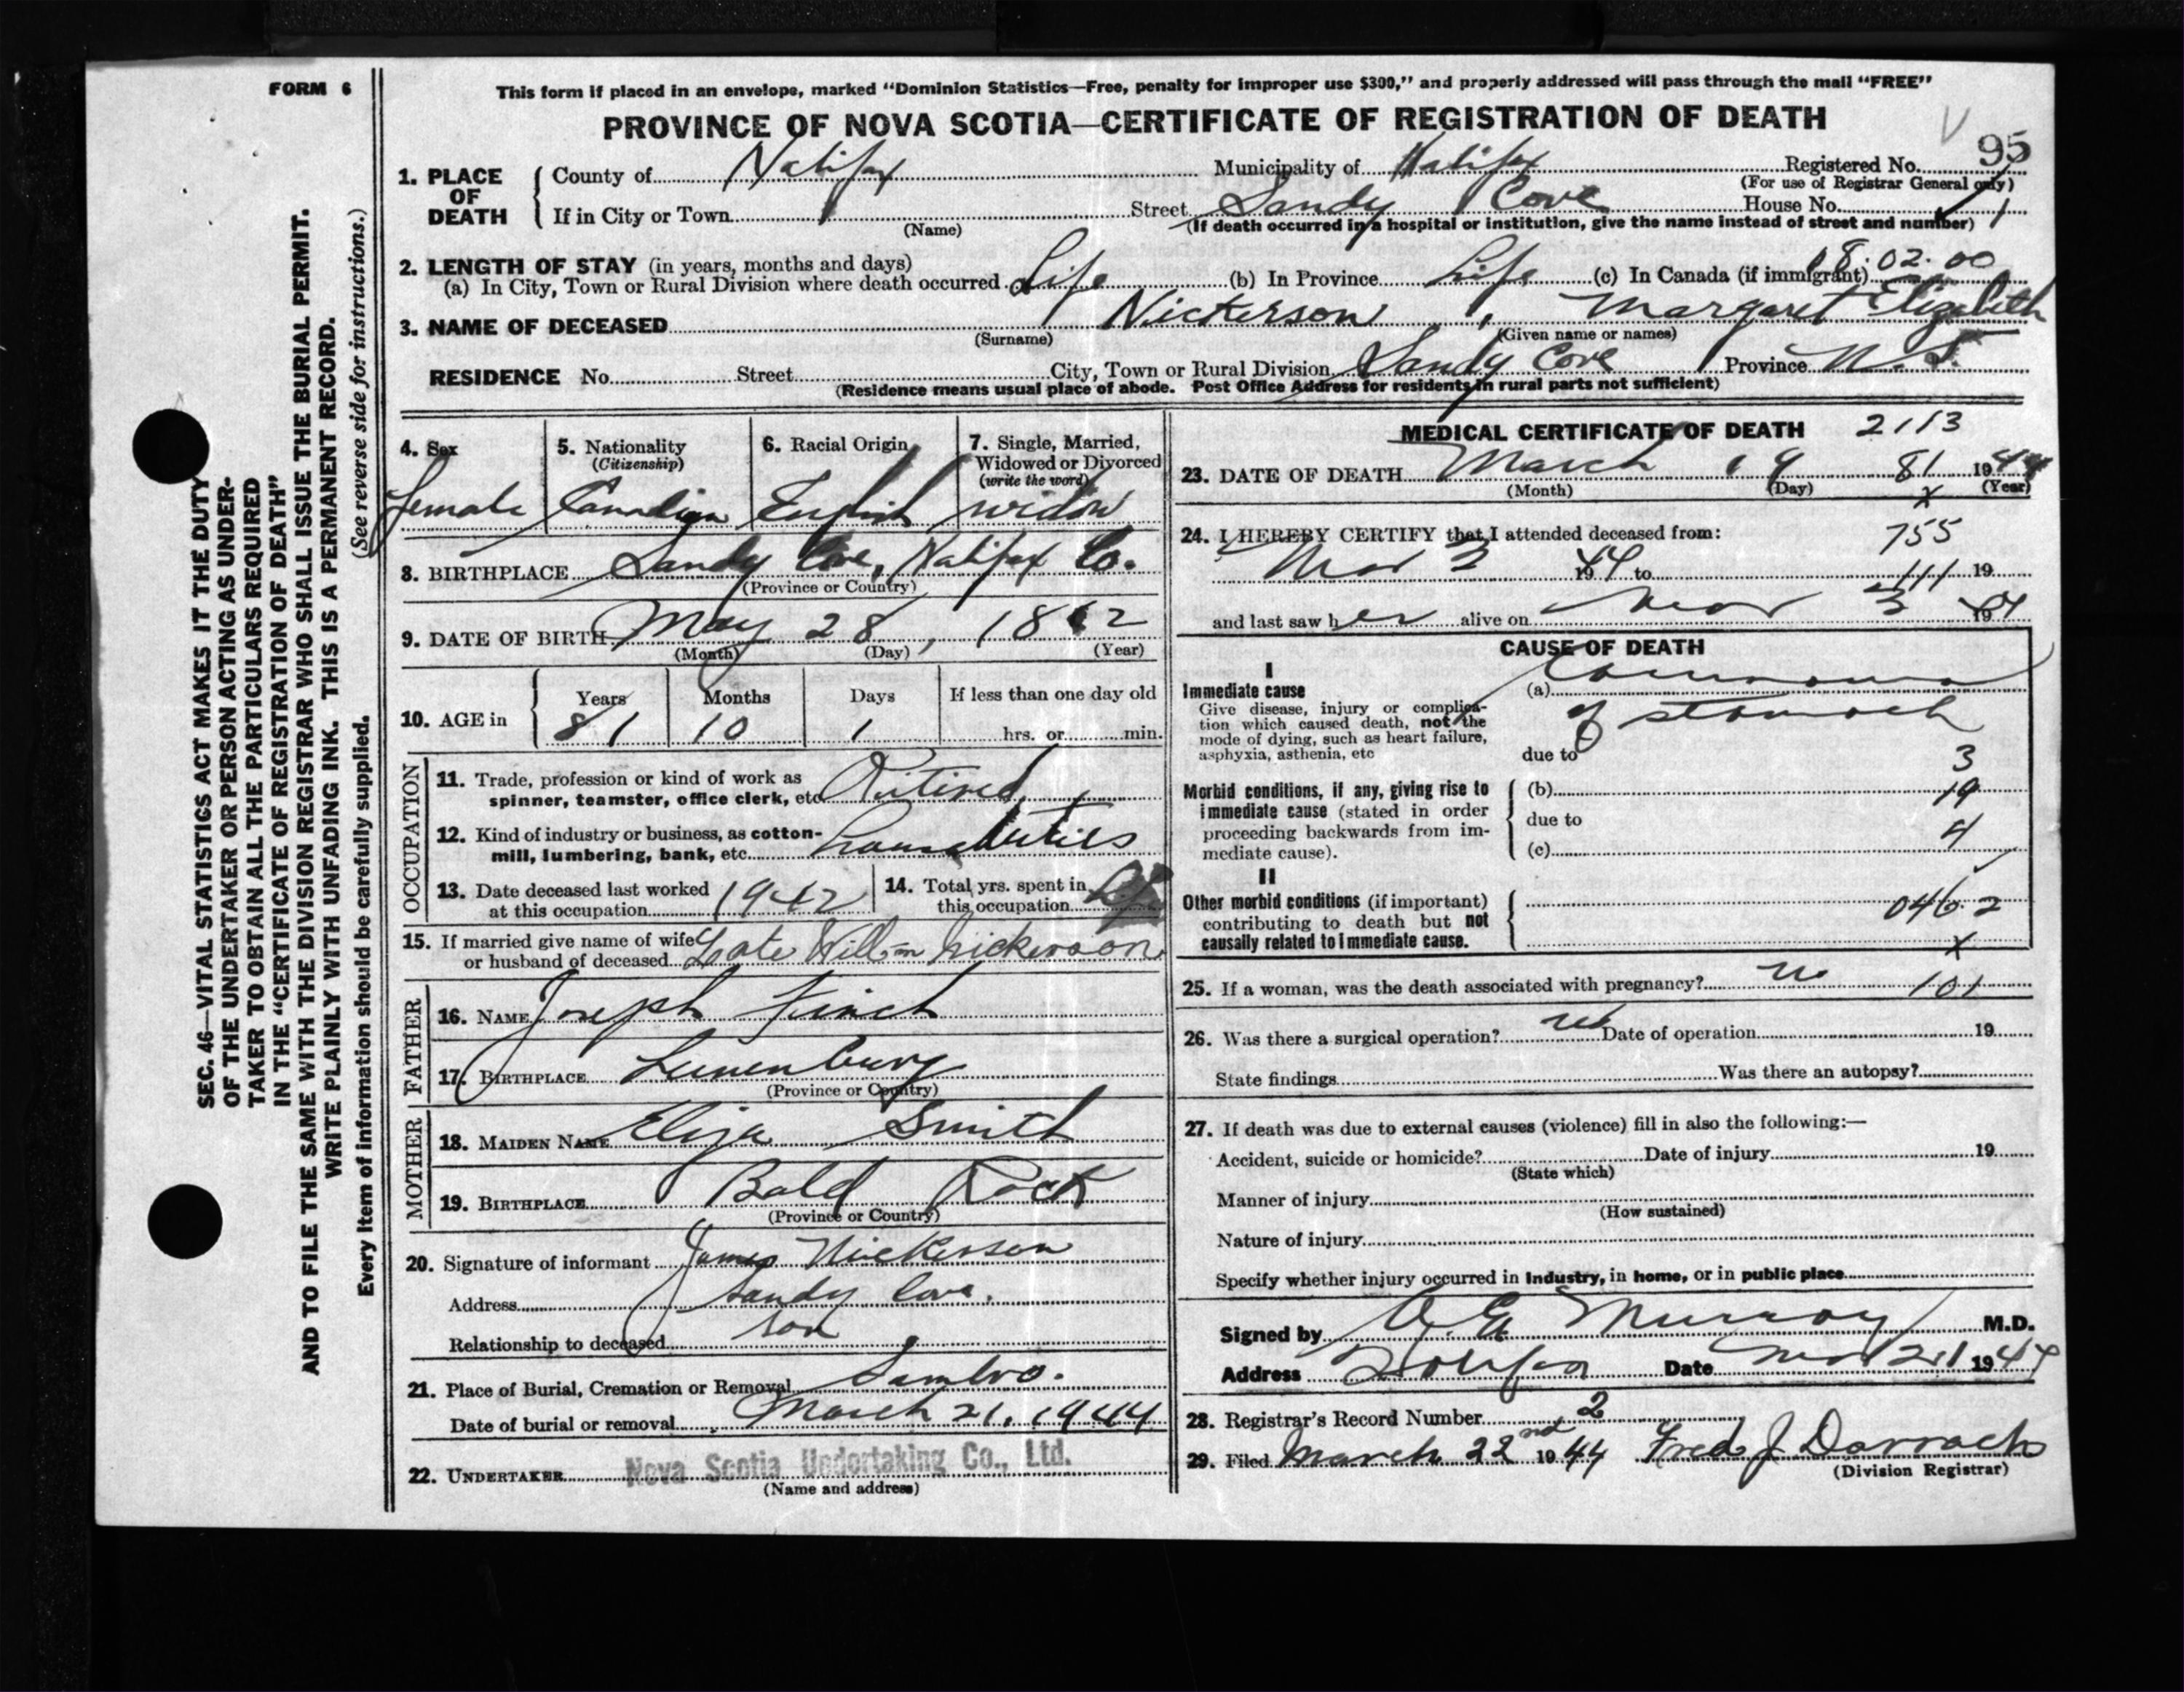 FORM 6
This form if placed in an envelope, marked "Dominion Statistics—Free, penalty for improper use $300," and properly addressed will pass through the mail "FREE"
PROVINCE OF NOVA SCOTIA—CERTIFICATE OF REGISTRATION OF DEATH
95
1. PLACE OF DEATH County of Halifax Municipality of Halifax Registered No.
(For use of Registrar General only)
If in City or Town Street Sandy Cove House No. 1
(Name) (If death occurred in a hospital or institution, give the name instead of street and number)
2. LENGTH OF STAY (in years, months and days) 18.02.00
(a) In City, Town or Rural Division where death occurred Life (b) In Province Life (c) In Canada (if immigrant)
3. NAME OF DECEASED Nickerson, Margaret Elizabeth
(Surname) (Given name or names)
RESIDENCE No. Street City, Town or Rural Division Sandy Cove Province N.S.
(Residence means usual place of abode. Post Office Address for residents in rural parts not sufficient)
4. Sex 5. Nationality 6. Racial Origin 7. Single, Married,
(Citizenship) Widowed or Divorced
(write the word)
Female Canadian English widow
8. BIRTHPLACE Sandy Cove, Halifax Co.
(Province or Country)
9. DATE OF BIRTH May 28, 1862
(Month) (Day) (Year)
10. AGE in Years Months Days If less than one day old
81 10 1 hrs. or min.
OCCUPATION
11. Trade, profession or kind of work as
spinner, teamster, office clerk, etc. Retired
12. Kind of industry or business, as cotton-
mill, lumbering, bank, etc. house duties
13. Date deceased last worked
at this occupation 1942
14. Total yrs. spent in
this occupation Life
15. If married give name of wife
or husband of deceased Late Willm Nickerson
FATHER
16. NAME Joseph Finch
17. BIRTHPLACE Lunenburg
(Province or Country)
MOTHER
18. MAIDEN NAME Eliza Smith
19. BIRTHPLACE Bald Rock
(Province or Country)
20. Signature of informant James Nickerson
Address Sandy Cove.
Relationship to deceased son
21. Place of Burial, Cremation or Removal Sambro.
Date of burial or removal March 21, 1944
22. UNDERTAKER Nova Scotia Undertaking Co., Ltd.
(Name and address)
MEDICAL CERTIFICATE OF DEATH 2113
23. DATE OF DEATH March 19 81 1944
(Month) (Day) (Year)
x
24. I HEREBY CERTIFY that I attended deceased from: 755
Mar 3 1944 to 111 19
and last saw her alive on Mar 3 1944
CAUSE OF DEATH
I
Immediate cause (a) Carcinoma
Give disease, injury or complica-
tion which caused death, not the of stomach
mode of dying, such as heart failure,
asphyxia, asthenia, etc due to 3
Morbid conditions, if any, giving rise to (b) 19
immediate cause (stated in order
proceeding backwards from im- due to 4
mediate cause). (c)
II
Other morbid conditions (if important) 046.2
contributing to death but not
causally related to immediate cause. x
25. If a woman, was the death associated with pregnancy? no 101
26. Was there a surgical operation? no Date of operation 19
State findings Was there an autopsy?
27. If death was due to external causes (violence) fill in also the following:—
Accident, suicide or homicide? Date of injury 19
(State which)
Manner of injury
(How sustained)
Nature of injury
Specify whether injury occurred in Industry, in home, or in public place
Signed by A. E. Murray M.D.
Address Halifax Date Mar 21 1944
28. Registrar's Record Number 2
29. Filed March 22nd 1944 Fred J Darrach
(Division Registrar)
SEC. 46—VITAL STATISTICS ACT MAKES IT THE DUTY
OF THE UNDERTAKER OR PERSON ACTING AS UNDER-
TAKER TO OBTAIN ALL THE PARTICULARS REQUIRED
IN THE "CERTIFICATE OF REGISTRATION OF DEATH"
AND TO FILE THE SAME WITH THE DIVISION REGISTRAR WHO SHALL ISSUE THE BURIAL PERMIT.
WRITE PLAINLY WITH UNFADING INK. THIS IS A PERMANENT RECORD.
Every item of information should be carefully supplied. (See reverse side for instructions.)